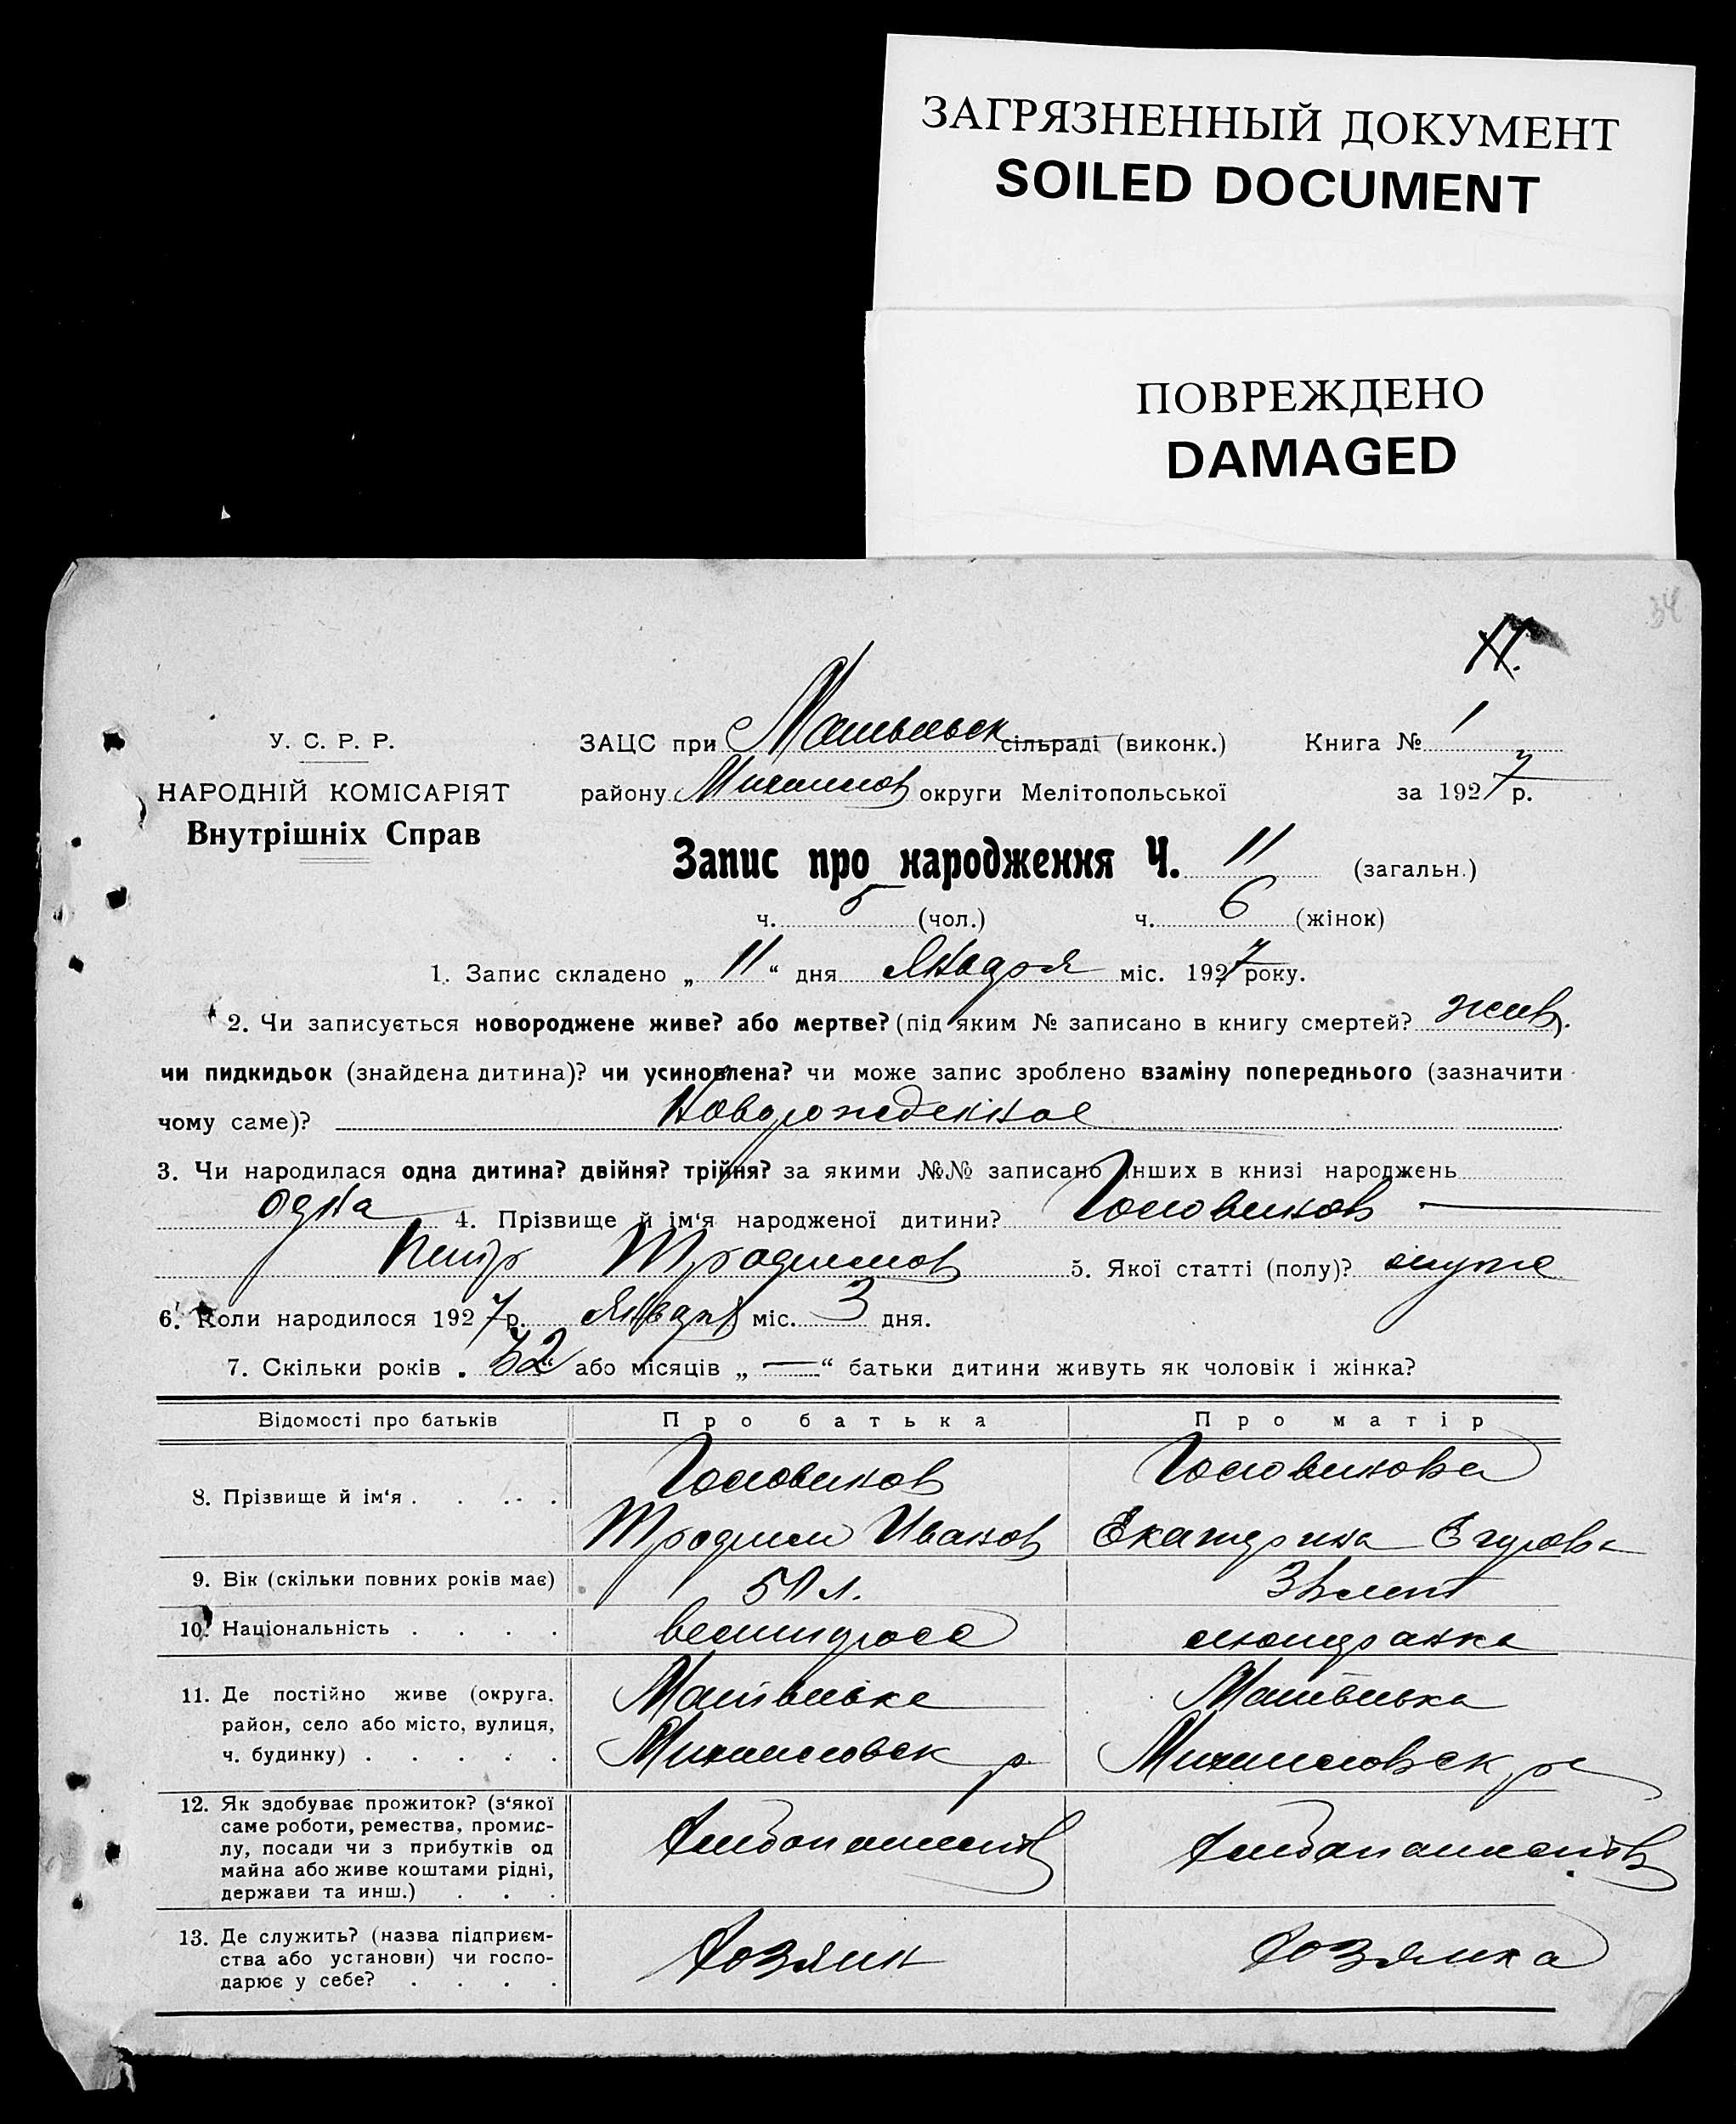 ЗАГРЯЗНЕННЫЙ ДОКУМЕНТ
SOILED DOCUMENT
ПОВРЕЖДЕНО
DAMAGED
34
11.
У. С. Р. Р.
НАРОДНІЙ КОМІСАРІЯТ
Внутрішніх Справ
ЗАЦС при Матвеевск сільраді (виконк.) Книга № 1
району Михайлов округи Мелітопольської за 1927 р.
Запис про народження Ч. 11 (загальн.)
ч. 5 (чол.) ч. 6 (жінок)
1. Запис складено „ 11 “ дня Января міс. 1927 року.
2. Чи записується новороджене живе? або мертве? (під яким № записано в книгу смертей? жив).
чи пидкидьок (знайдена дитина)? чи усиновлена? чи може запис зроблено взаміну попереднього (зазначити
чому саме)? Новорожденное
3. Чи народилася одна дитина? двійня? трійня? за якими №№ записано інших в книзі народжень
одна 4. Прізвище й ім‘я народженої дитини? Головинов
Петр Трофимов 5. Якої статті (полу)? муже
6. Коли народилося 1927 р. Января міс. 3 дня.
7. Скільки років „ “ або місяців „ — “ батьки дитини живуть як чоловік і жінка?
Відомості про батьків Про батька Про матір
8. Прізвище й ім‘я . . . . . Головинов Головинова
Трофим Иванов Екатерина Егорова
9. Вік (скільки повних років має) 50 л. лет
10. Національність . . . . великоросс
11. Де постійно живе (округа, район, село або місто, вулиця, ч. будинку) . . . . . Матвеевка Матвеевка
Михайловск р. Михайловск р
12. Як здобуває прожиток? (з‘якої саме роботи, ремества, промислу, посади чи з прибутків од майна або живе коштами рідні, держави та инш.) . . . Хлебопашеств Хлебопашеств
13. Де служить? (назва підприємства або установи) чи господарює у себе? . . . . Хозяин Хозяйка